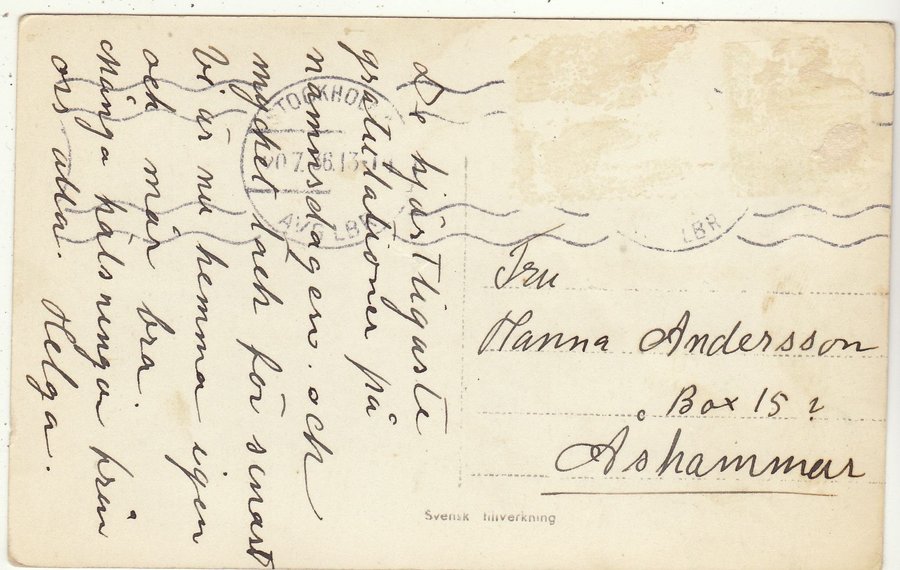 De hjärtligaste
gratulationer på
namnsdagen. och
mycket tack för senast
Vi är nu hemma igen
och mår bra.
Många hälsningar från
oss alla. Helga.
STOCKHOLM
20.7.36.13-14
AVG LBR
LBR
Fru
Hanna Andersson
Box 15 ?
Åshammar
Svensk tillverkning